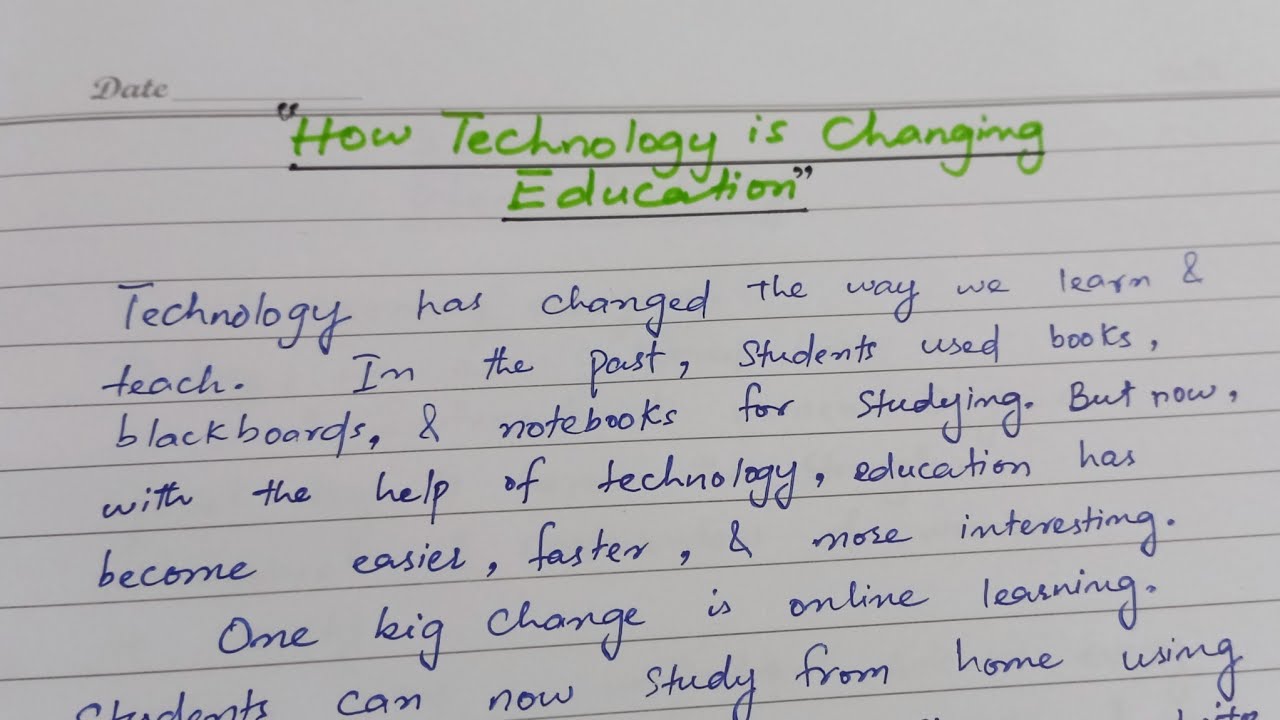 Date
"How Technology is Changing
Education"
Technology has changed the way we learn &
teach. In the past, students used books,
blackboards, & notebooks for studying. But now,
with the help of technology, education has
become easier, faster, & more interesting.
One big change is online learning.
Students can now study from home using